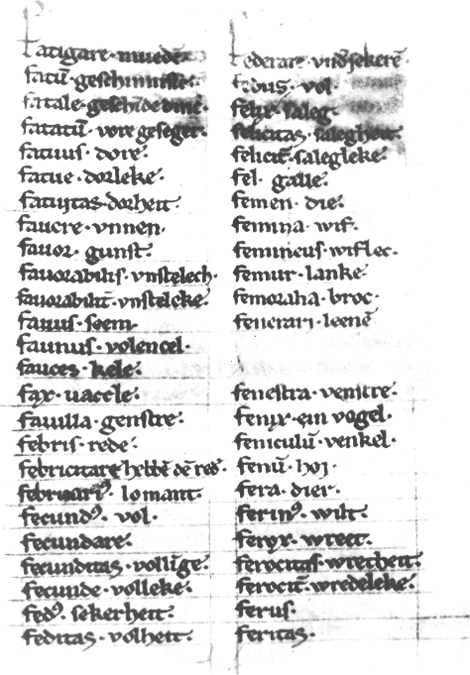 fatigare · mueden
fatū · geschinnisse ·
fatale · geschide dinc ·
fatatū · vore geseget ·
fatuus · dore ·
fatue · dorleke ·
fatuitas · dorheit ·
fauere · vnnen ·
fauor · gunst ·
fauorabilis · vnstelech ·
fauorabilit̄ · vnstelcke ·
fauus · seem
faunus · volencel ·
fauces · kele ·
fax · uaccle ·
fauilla · genstre ·
febris · rede ·
febricitare · hebbē dē red᷒ ·
februari᷒ · lomant ·
fecund᷒ · vol ·
fecundare ·
fecunditas · vollīge ·
fecunde · volleke ·
fed᷒ · sekerheit ·
feditas · volheit ·
federare · vnd̄ sekerē ·
fedus · vol ·
felix · saleg ·
felicitas · salegheit ·
felicit̄ · salegleke ·
fel · galle ·
femen · die ·
femina · wif ·
femineus · wiflec ·
femur · lanke
femoralia · broc ·
fenerari · leenē
fenestra · venstre ·
fenix · ein vogel ·
feniculū · venkel ·
fenū · hoj ·
fera · dier ·
ferin᷒ · wilt ·
ferox · wreet ·
ferocitas · wrecheit ·
ferocit̄ · wredeleke ·
ferus ·
feritas ·